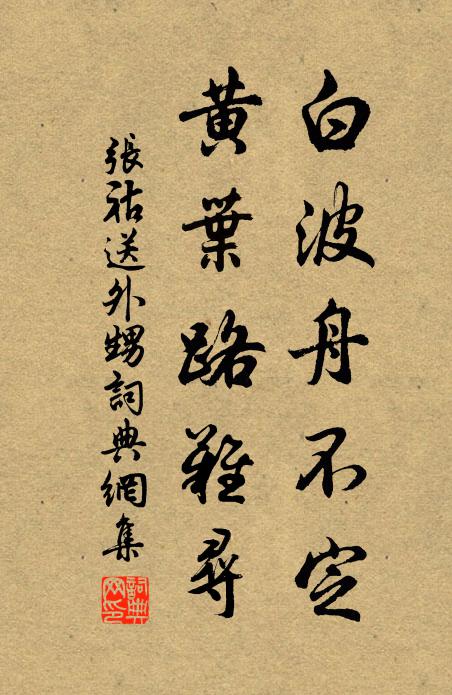 白波舟不定
黃葉路難尋
張祜送外甥詞典網集
詞典网印